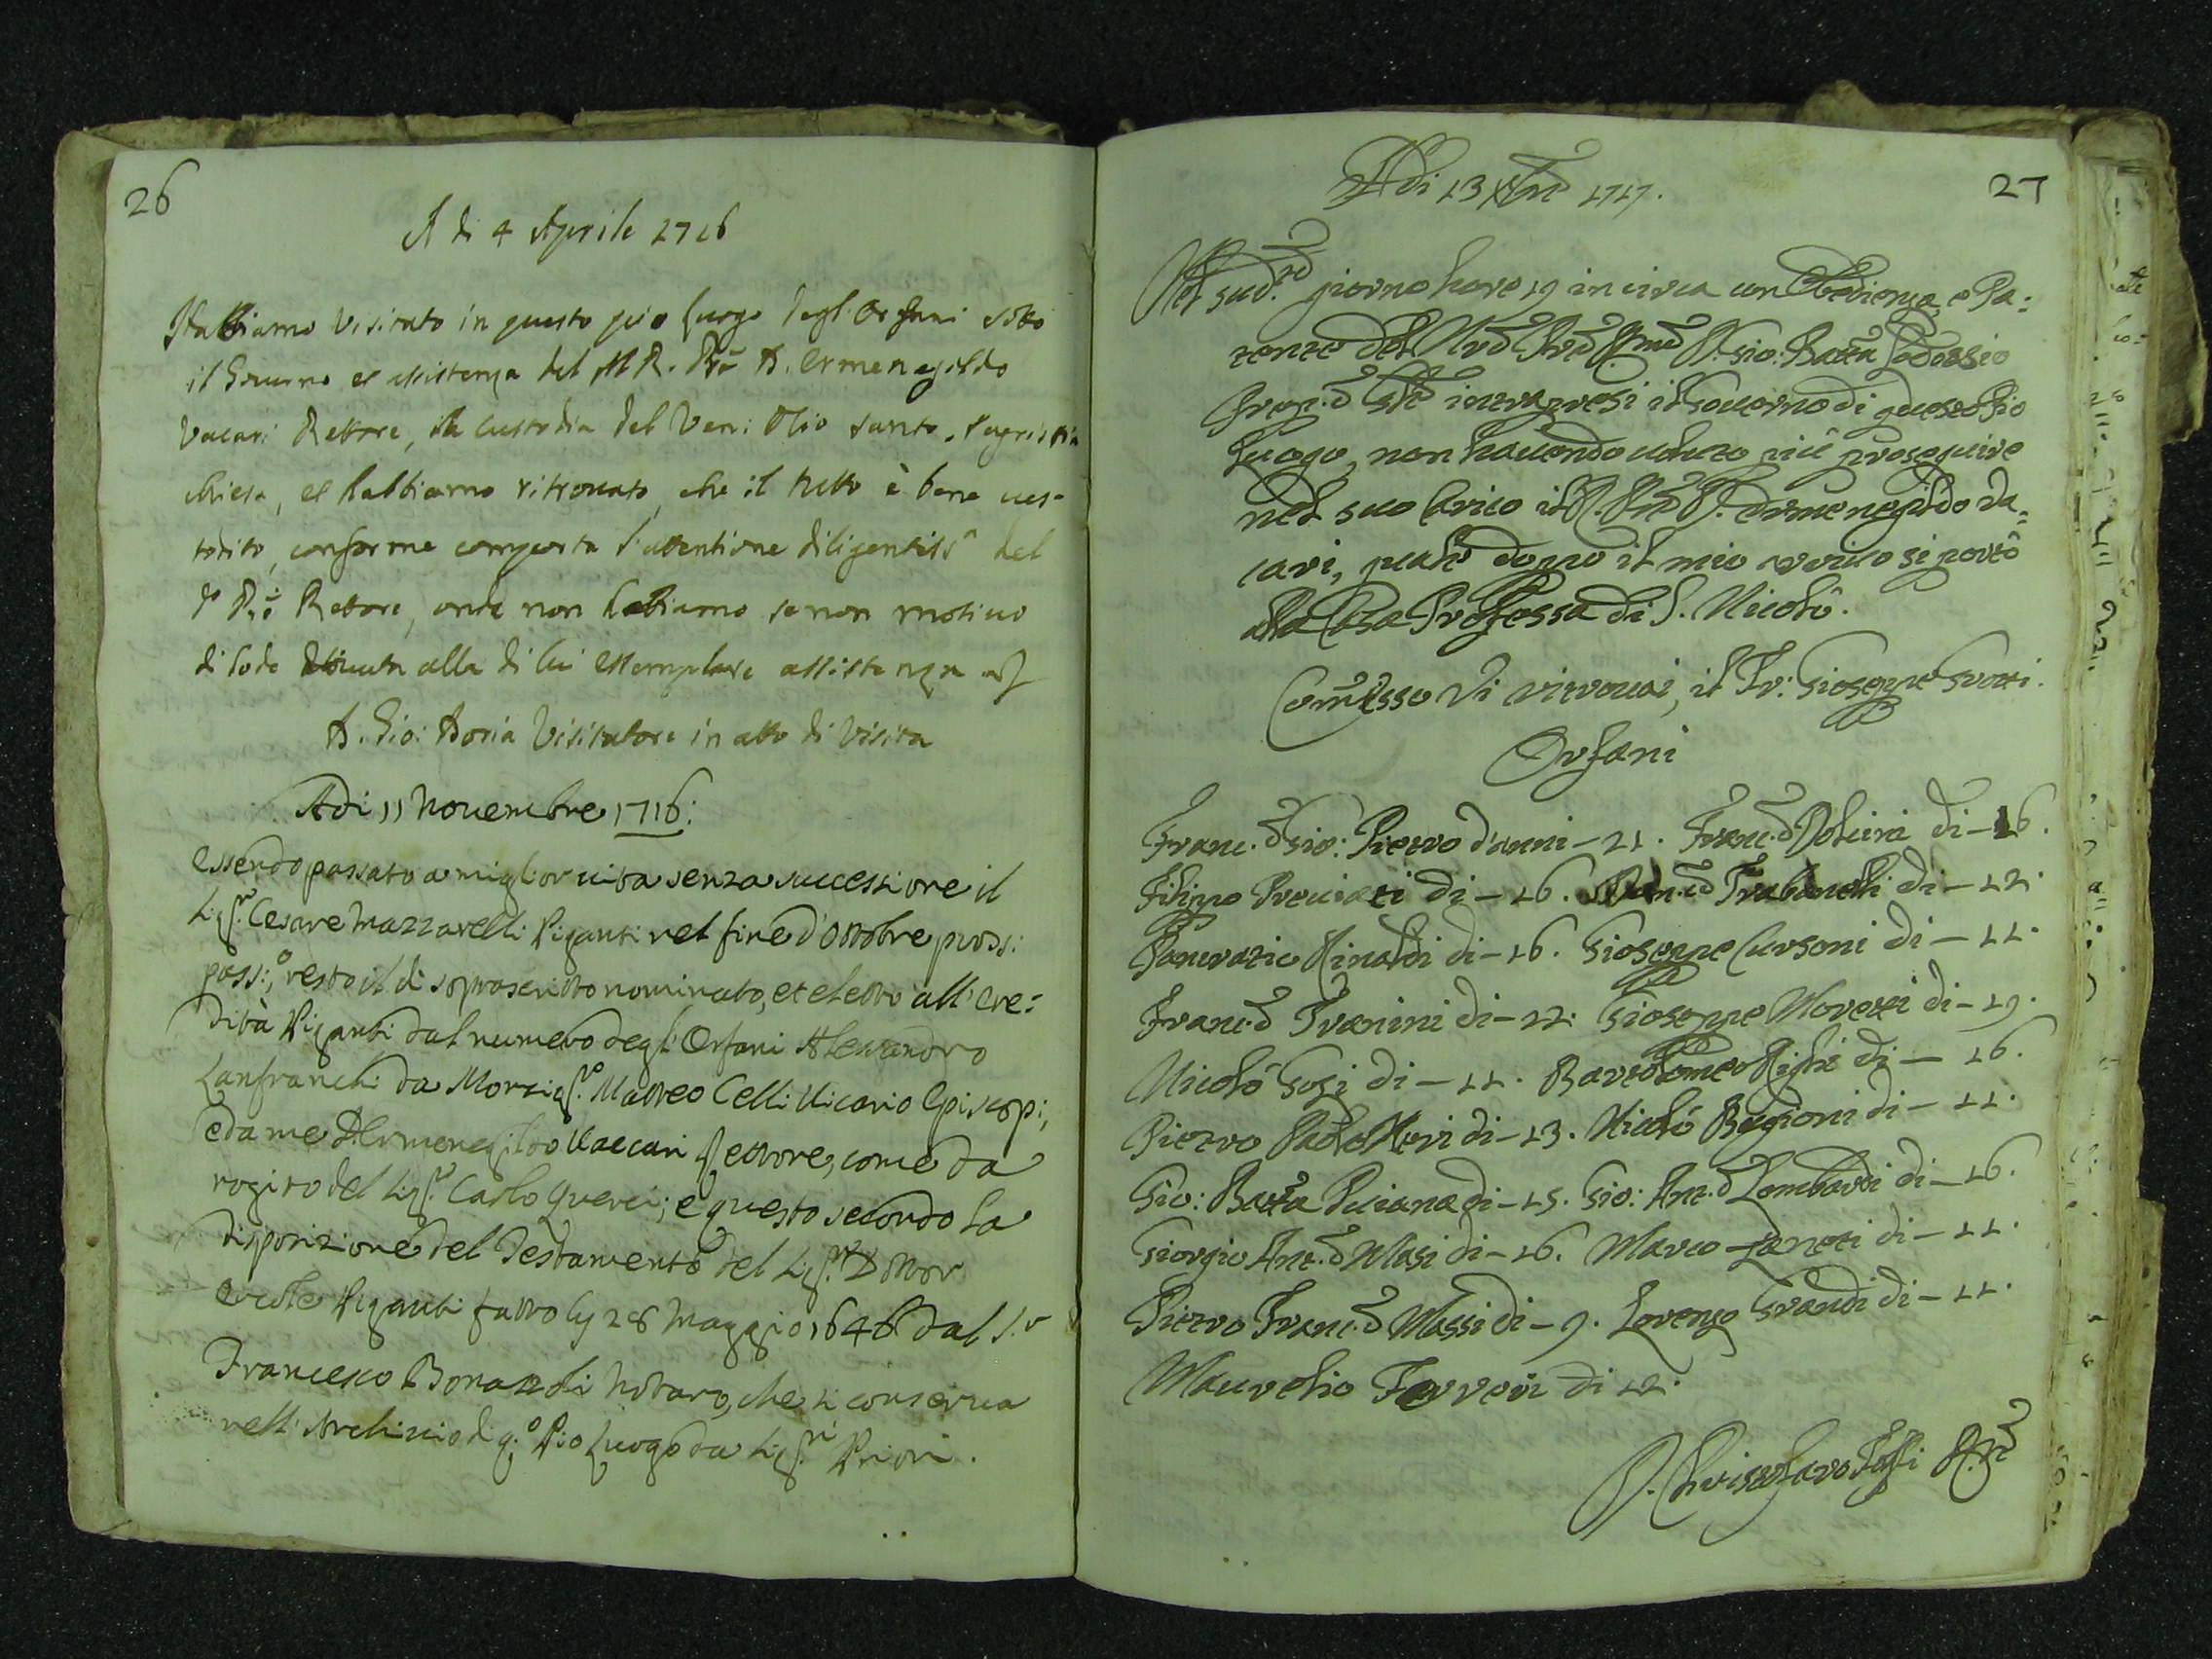 26
A di 4 Aprile 1716
Habbiamo visitato in questo pio luogo degl'Orfani sotto
il Gouerno et assistenza del M R. Prē D. Ermenegildo
Vacari Rettore, la custodia del Ven: Olio santo, sagristia
chiesa, et habbiamo ritrouato, che il tutto è bene cus-
todito, conforme comporta l'attentione diligentiss.a del
do Prē Rettore, onde non habbiamo se non motiuo
di lode douuta alla di lui essemplare assistenza
D. Gio: Boria Visitatore in atto di Visita
Adi 11 Nouembre 1716:
Essendo passato a miglior uita senza successione il
Sig.r Cesare Mazzarelli Piganti nel fine d'Ottobre pross:
pass:o, restò il dì soprascritto nominato, et eletto all'ere=
dità Piganti dal numero degl'Orfani Alessandro
Lanfranchi da Monsig.r Matteo Celli Vicario Episcop:,
e da me D. Ermenegildo Vaccari Rettore, come da
rogito del Sig.r Carlo Querci; e questo secondo la
disposizione del Testamento del Sig.r Dottor
Ercole Piganti fatto ly 28 Maggio 1646 dal S.r
Francesco Bonazoli Notaro, che si conserua
nell'Archiuio di q.o Pio Luogo da Sig.ri Priori.
27
Adi 13 Xbre 1717.
Nel sud.to giorno hore 19 in circa con Obedienza, e Pa:
tente del Gio: Batta Lodouasio
intrapresi il Gouerno di questo Pio
Luogo, non hauendo uoluto più proseguire
nel suo carico il P. D. Ermenegildo Va=
cari, quale doppo il mio arriuo si portò
alla Casa Professa di S. Nicolò.
Comesso vi ritrouai, il Fr: Gioseppe Grotti.
Orfani
Franc.o Gio: Pietro d'anni - 21. Franc.o Doluini di - 16.
Filippo Preuiati di - 16. Trabanelli di - 12.
Pancratio Rinaldi di - 16. Gioseppe Cursoni di - 11.
Franc.o Tranini di - 12. Gioseppe Moretti di - 19.
Nicolò Gosi di - 11. Bartolomeo Righi di - 16.
Pietro Paolo Neri di - 13. Nicolò Bregioni di - 11.
Gio: Batta Puiana di - 15. Gio: Ant.o Lombardi di - 16.
Giorgio Ant.o Masi di - 16. Marco Zanoti di - 11.
Pietro Franc.o Massi di - 9. Lorenzo Grandi di - 11.
Maurelio Ferrari di 12.
D. Christoforo Tassi R.re